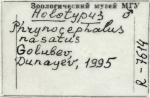 Зоологический музей МГУ
Holotypus ♂
Phrynocephalus
nasatus
Golubev,
Dunayev, 1995
R-7614